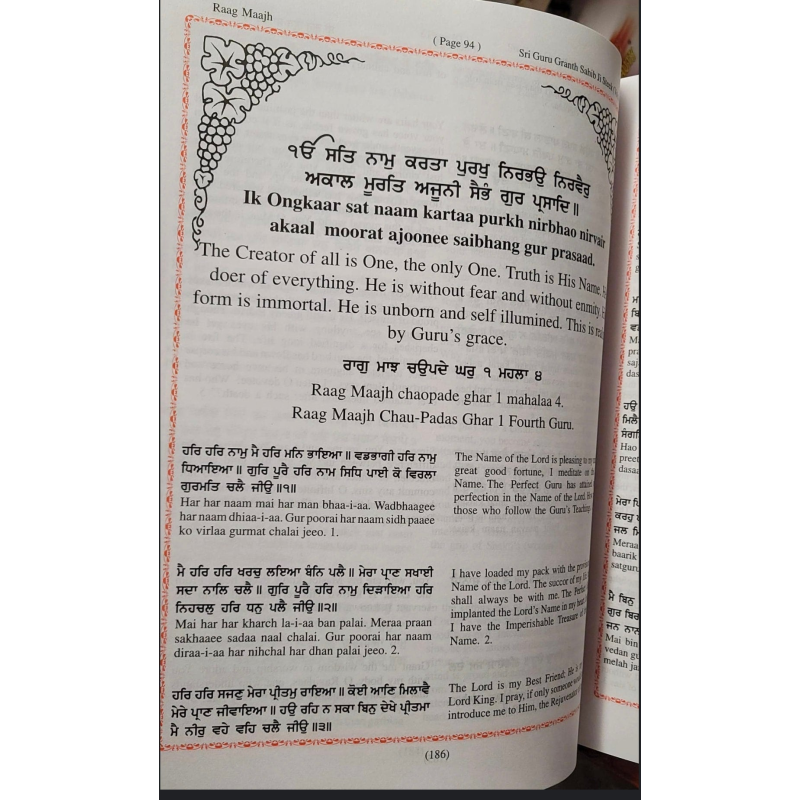 Raag Maajh
( Page 94 )
Sri Guru Granth Sahib Ji
ੴ ਸਤਿ ਨਾਮੁ ਕਰਤਾ ਪੁਰਖੁ ਨਿਰਭਉ ਨਿਰਵੈਰੁ
ਅਕਾਲ ਮੂਰਤਿ ਅਜੂਨੀ ਸੈਭੰ ਗੁਰ ਪ੍ਰਸਾਦਿ॥
Ik Ongkaar sat naam kartaa purkh nirbhao nirvair
akaal moorat ajoonee saibhang gur prasaad.
The Creator of all is One, the only One. Truth is His Name.
doer of everything. He is without fear and without enmity.
form is immortal. He is unborn and self illumined. This is
by Guru's grace.
ਰਾਗੁ ਮਾਝ ਚਉਪਦੇ ਘਰੁ ੧ ਮਹਲਾ ੪
Raag Maajh chaopade ghar 1 mahalaa 4.
Raag Maajh Chau-Padas Ghar 1 Fourth Guru.
ਹਰਿ ਹਰਿ ਨਾਮੁ ਮੈ ਹਰਿ ਮਨਿ ਭਾਇਆ॥ ਵਡਭਾਗੀ ਹਰਿ ਨਾਮੁ
ਧਿਆਇਆ॥ ਗੁਰਿ ਪੂਰੈ ਹਰਿ ਨਾਮ ਸਿਧਿ ਪਾਈ ਕੋ ਵਿਰਲਾ
ਗੁਰਮਤਿ ਚਲੈ ਜੀਉ॥੧॥
Har har naam mai har man bhaa-i-aa. Wadbhaagee
har naam dhiaa-i-aa. Gur poorai har naam sidh paaee
ko virlaa gurmat chalai jeeo. 1.
The Name of the Lord is pleasing to
great good fortune, I meditate on
Name. The Perfect Guru has attained
perfection in the Name of the Lord.
those who follow the Guru's Teachings
ਮੈ ਹਰਿ ਹਰਿ ਖਰਚੁ ਲਇਆ ਬੰਨਿ ਪਲੈ॥ ਮੇਰਾ ਪ੍ਰਾਣ ਸਖਾਈ
ਸਦਾ ਨਾਲਿ ਚਲੈ॥ ਗੁਰਿ ਪੂਰੈ ਹਰਿ ਨਾਮੁ ਦਿੜਾਇਆ ਹਰਿ
ਨਿਹਚਲੁ ਹਰਿ ਧਨੁ ਪਲੈ ਜੀਉ॥੨॥
Mai har har kharch la-i-aa ban palai. Meraa praan
sakhaaee sadaa naal chalai. Gur poorai har naam
diraa-i-aa har nihchal har dhan palai jeeo. 2.
I have loaded my pack with the
Name of the Lord. The succor of my
shall always be with me. The Perfect
implanted the Lord's Name in my
I have the Imperishable Treasure of
Name. 2.
ਹਰਿ ਹਰਿ ਸਜਣੁ ਮੇਰਾ ਪ੍ਰੀਤਮੁ ਰਾਇਆ॥ ਕੋਈ ਆਣਿ ਮਿਲਾਵੈ
ਮੇਰੇ ਪ੍ਰਾਣ ਜੀਵਾਇਆ॥ ਹਉ ਰਹਿ ਨ ਸਕਾ ਬਿਨੁ ਦੇਖੇ ਪ੍ਰੀਤਮਾ
ਮੈ ਨੀਰੁ ਵਹੇ ਵਹਿ ਚਲੈ ਜੀਉ॥੩॥
The Lord is my Best Friend; He is
Lord King. I pray, if only someone
introduce me to Him, the
(186)
ਹਉ
ਮਿਲੈ
Hao
preet
dasaa
ਮੇਰਾ
ਕਰਹੁ
ਜਲ
Meraa
baarik
satguru
ਮੈ ਬਿਨੁ
ਗੁਰ
ਜਨ
Mai bin
vedan gu
melah